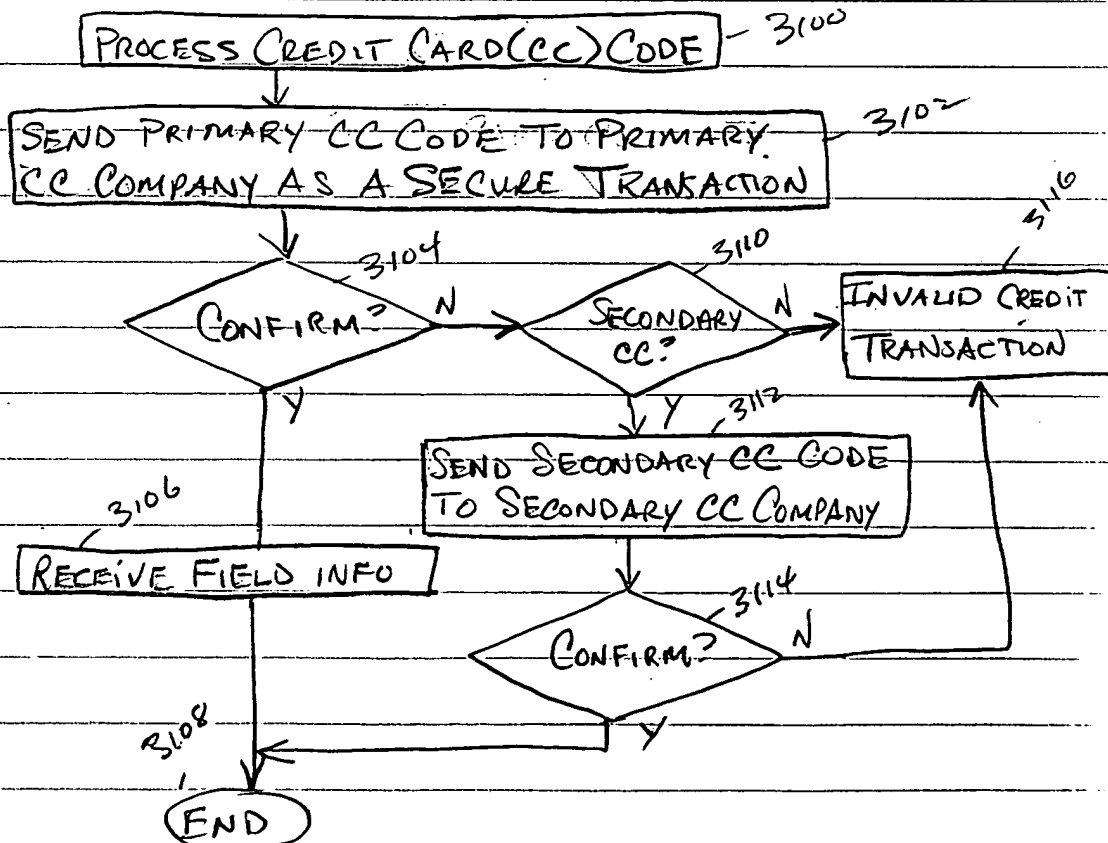 PROCESS CREDIT CARD(CC) CODE
3100
SEND PRIMARY CC CODE TO PRIMARY
CC COMPANY AS A SECURE TRANSACTION
3102
3104
CONFIRM?
N
Y
3110
SECONDARY
CC?
N
Y
3116
INVALID CREDIT
TRANSACTION
3112
SEND SECONDARY CC CODE
TO SECONDARY CC COMPANY
3106
RECEIVE FIELD INFO
3114
CONFIRM?
N
Y
3108
END